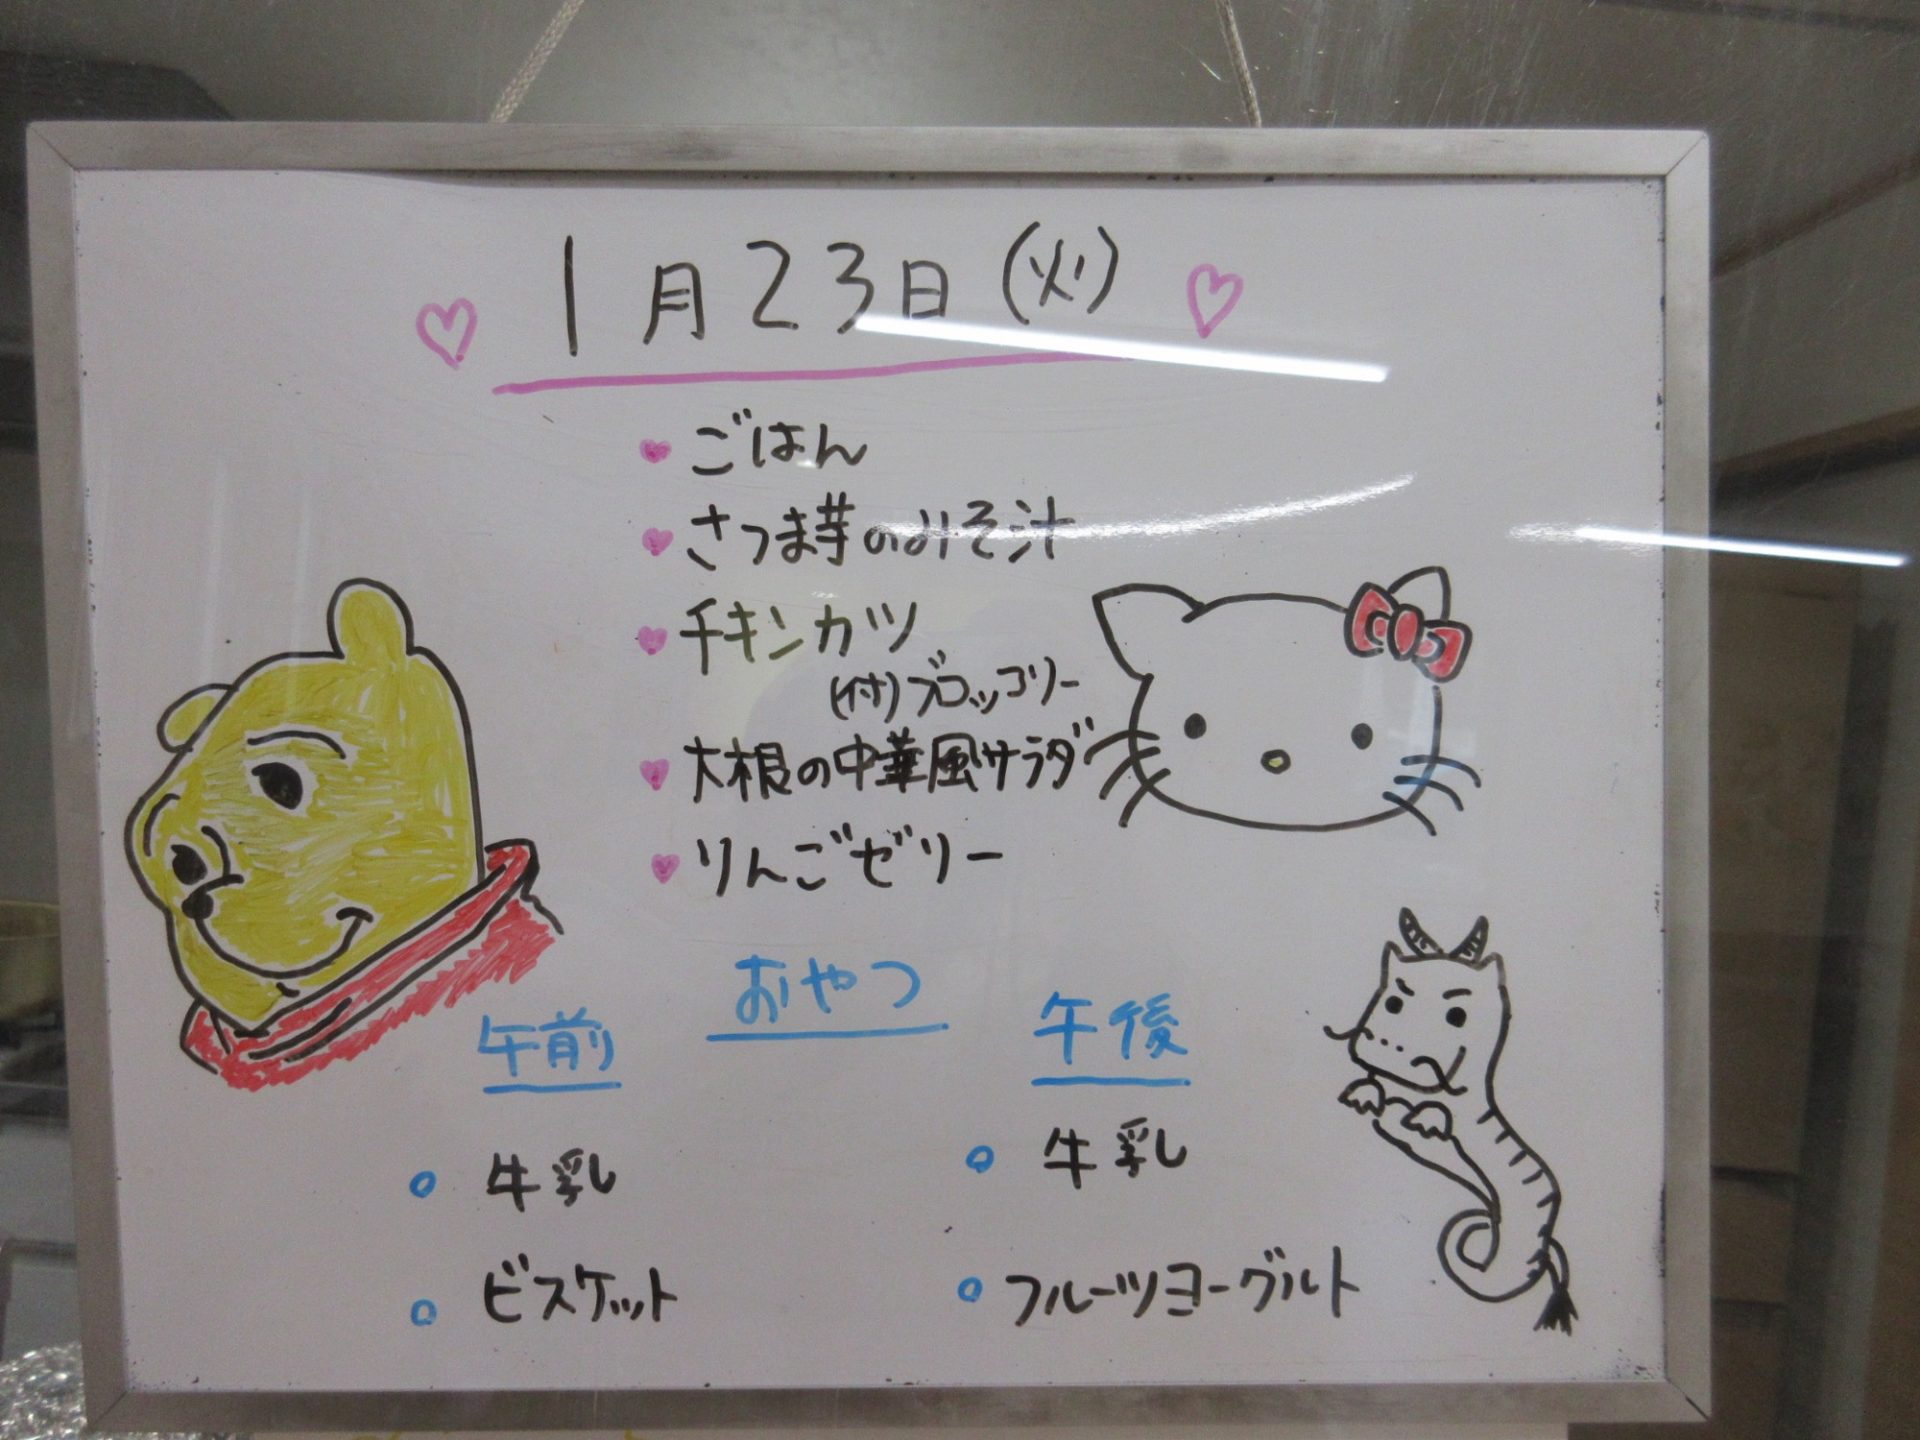 1月23日(火)
ごはん
さつま芋のみそ汁
チキンカツ
(付)ブロッコリー
大根の中華風サラダ
りんごゼリー
おやつ
午前
牛乳
ビスケット
午後
牛乳
フルーツヨーグルト